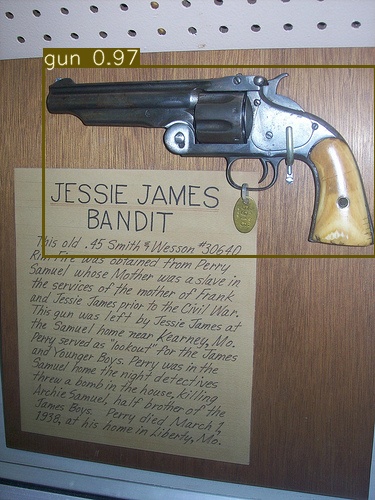 gun 0.97
JESSIE JAMES
BANDIT
This old .45 Smith & Wesson #30640
Rim Fire was obtained from Perry
Samuel whose Mother was a slave in
the services of the mother of Frank
and Jessie James prior to the Civil War.
This gun was left by Jessie James at
the Samuel home near Kearney, Mo.
Perry served as "lookout" for the James
and Younger Boys. Perry was in the
Samuel home the night detectives
threw a bomb in the house, killing
Archie Samuel, half brother of the
James Boys. Perry died March 1,
1938, at his home in Liberty, Mo.